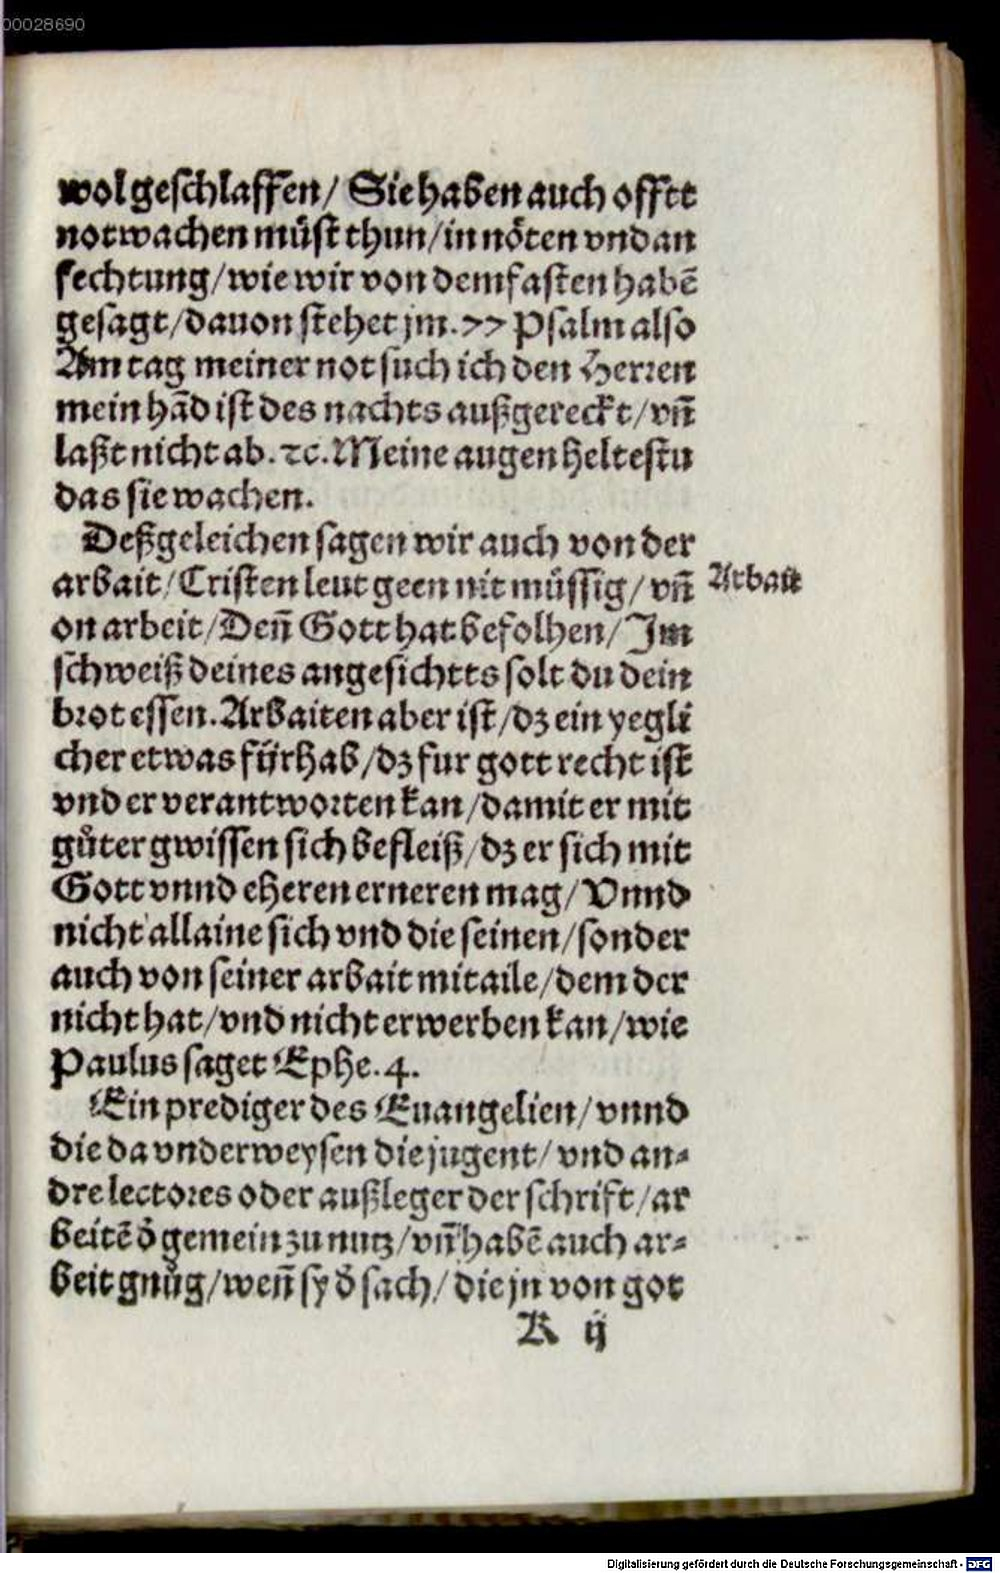 00028690
wol geschlaffen/ Sie haben auch offtt
not wachen müst thun/ in nöten vnd an
fechtung/ wie wir von dem fasten habẽ
gesagt/ dauon stehet jm. 77 Psalm also
Am tag meiner not such ich den Herren
mein hãd ist des nachts außgereckt/ vñ
laßt nicht ab. ꝛc. Meine augen heltestu
das sie wachen.
Deßgeleichen sagen wir auch von der
arbait/ Cristen leut geen nit müssig/ vñ
Arbait
on arbeit/ Deñ Gott hat befolhen/ Im
schweiß deines angesichtts solt du dein
brot essen. Arbaiten aber ist/ dz ein yegli
cher etwas fürhab/ dz fur gott recht ist
vnd er verantworten kan/ damit er mit
gůter gwissen sich befleiß/ dz er sich mit
Gott vnnd eheren erneren mag/ Vnnd
nicht allaine sich vnd die seinen/ sonder
auch von seiner arbait mitaile/ dem der
nicht hat/ vnd nicht erwerben kan/ wie
Paulus saget Ephe. 4.
Ein prediger des Euangelien/ vnnd
die da vnderweysen die jugent/ vnd an⸗
dre lectores oder außleger der schrift/ ar
beitẽ d̕ gemein zu nutz/ vñ habẽ auch ar⸗
beit gnůg/ weñ sy d̕ sach/ die jn von got
K ij
Digitalisierung gefördert durch die Deutsche Forschungsgemeinschaft - DFG